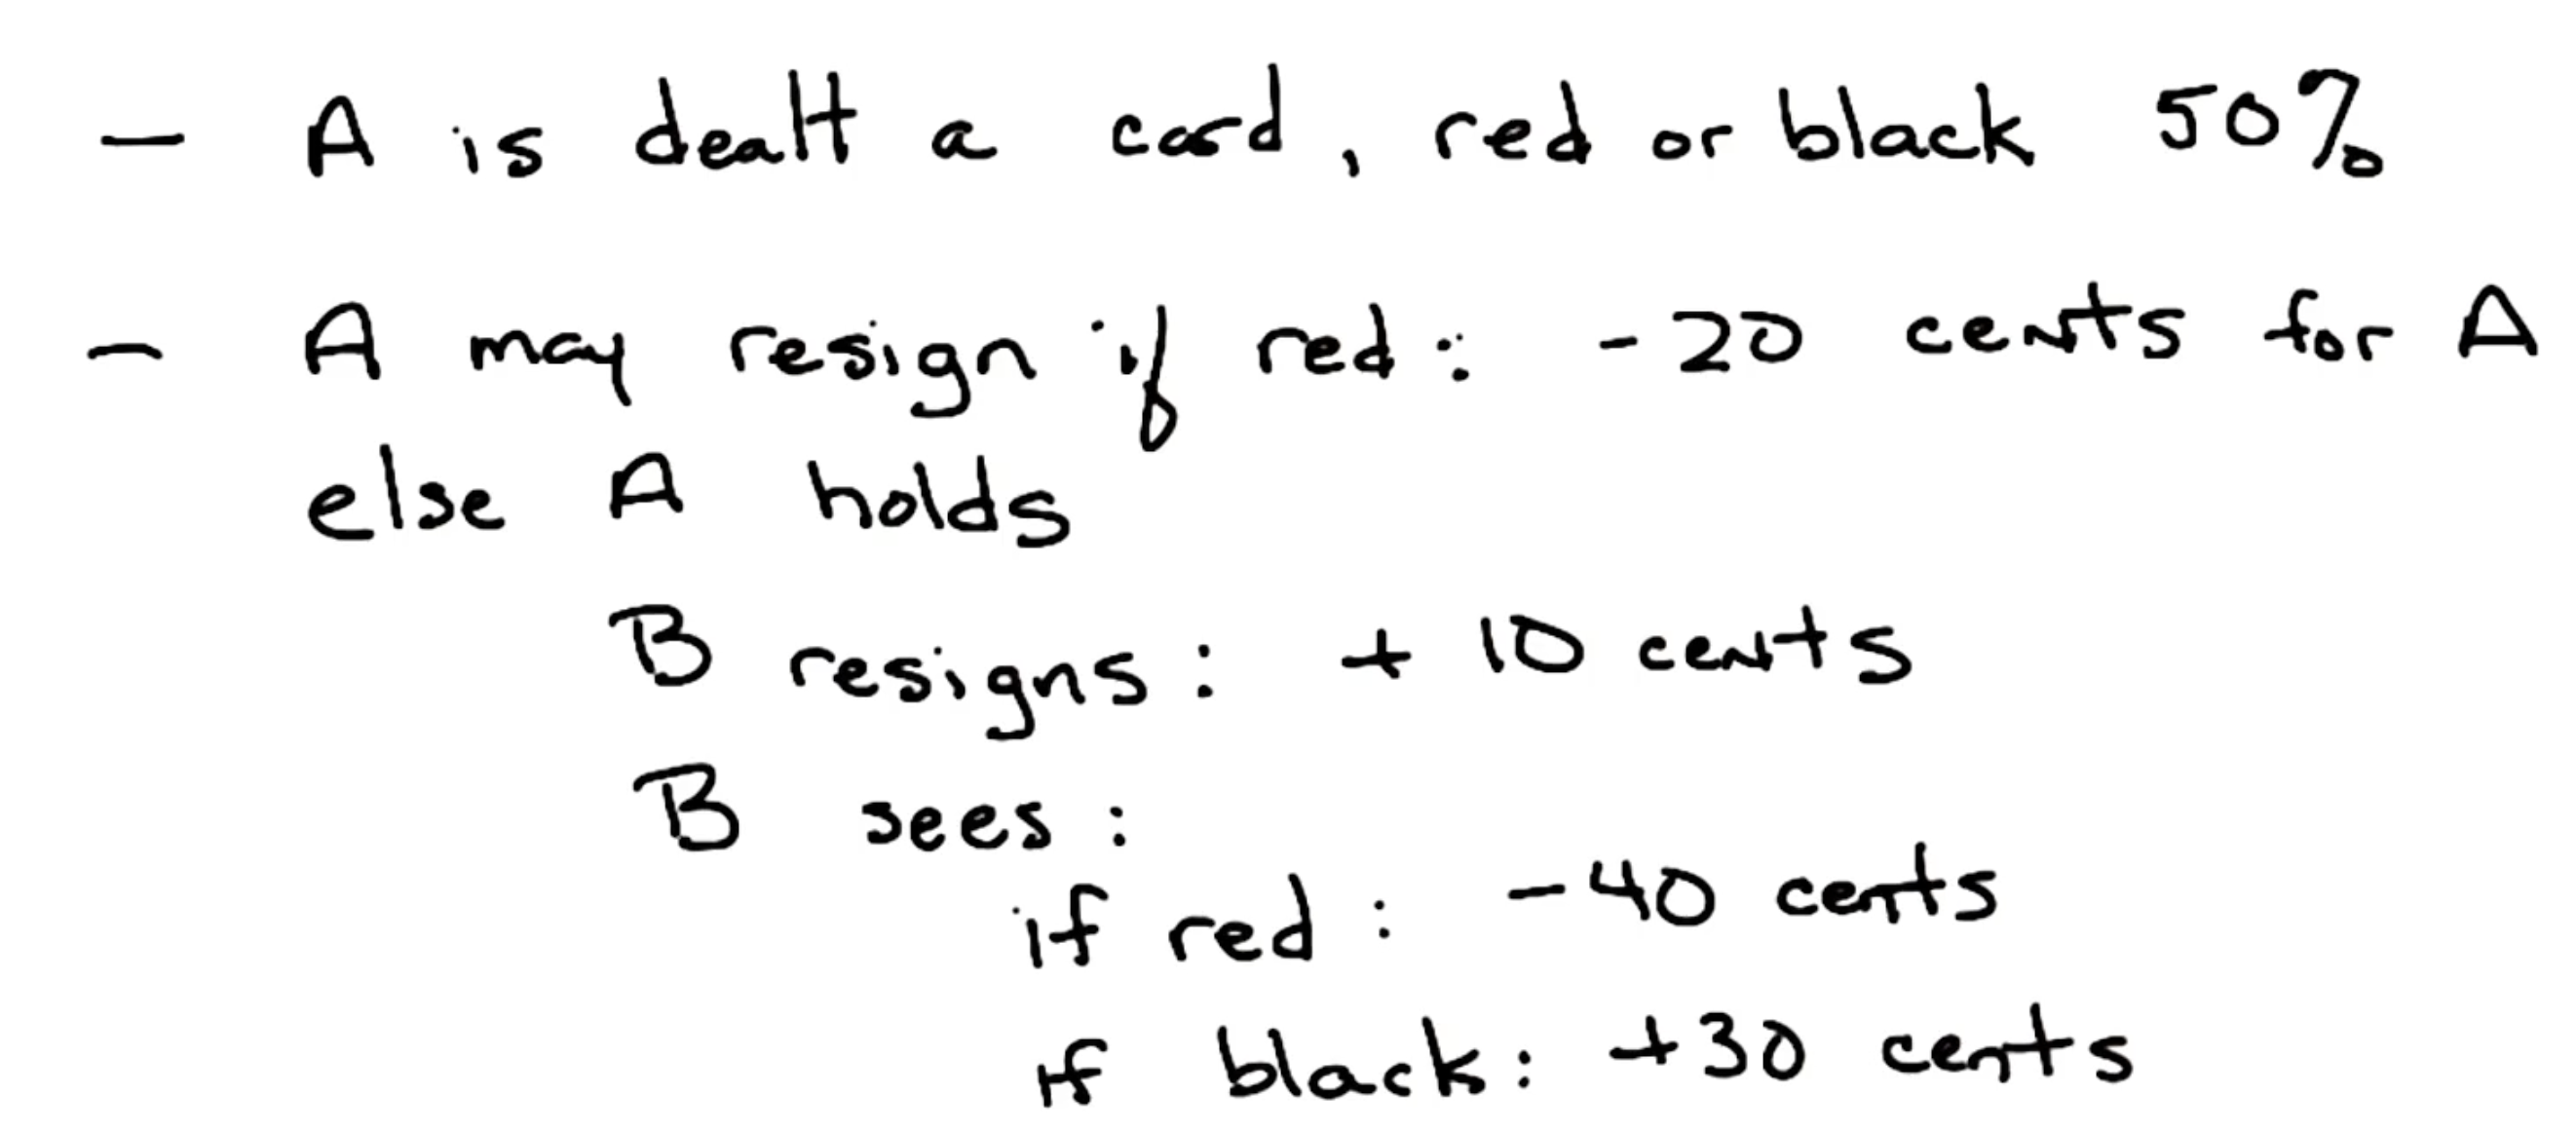 - A is dealt a card, red or black 50%
- A may resign if red: -20 cents for A
else A holds
B resigns: + 10 cents
B sees:
if red: -40 cents
if black: +30 cents